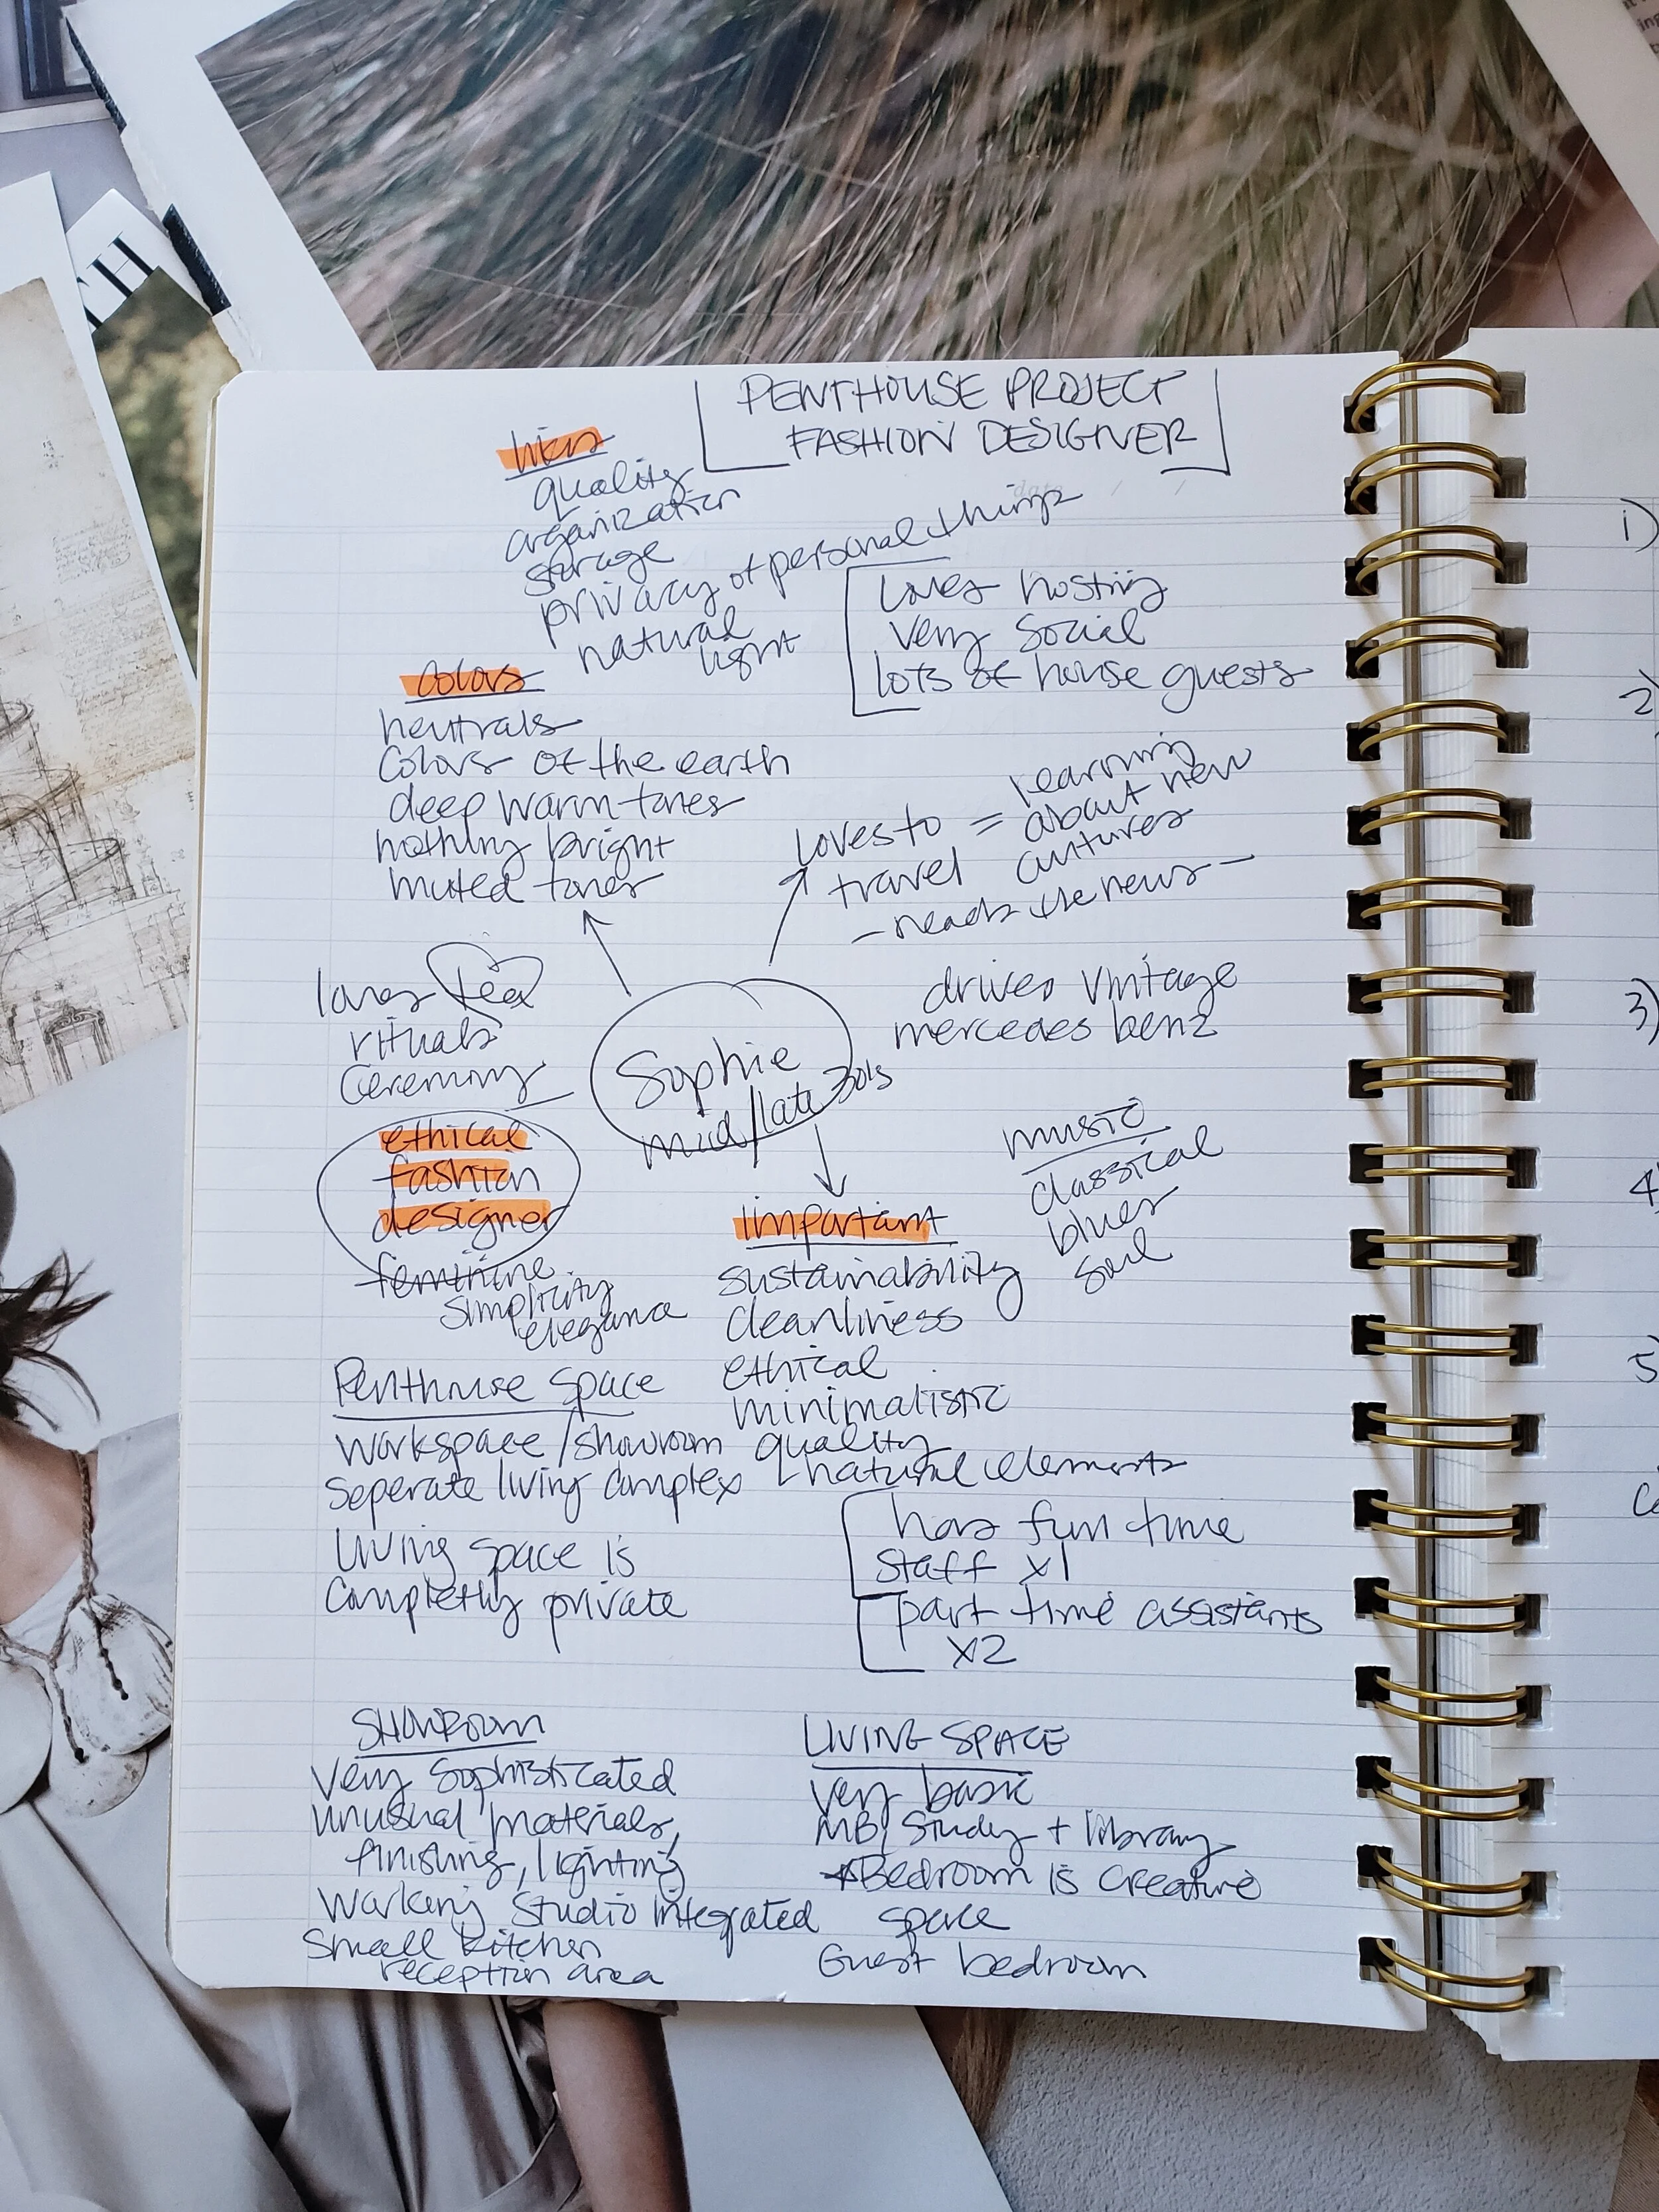 TH
PENTHOUSE PROJECT
FASHION DESIGNER
date / /
likes
quality
organization
storage
privacy of personal things
natural
light
loves hosting
very social
lots of house guests
colors
neutrals
colors of the earth
deep warm tones
nothing bright
muted tones
loves to = learning
travel about new
cultures
- reads the news -
loves tea
rituals
ceremony
Sophie
mid/late 30's
drives vintage
mercedes benz
music
classical
blues
soul
ethical
fashion
designer
feminine
simplicity
elegance
important
sustainability
cleanliness
ethical
minimalistic
quality
natural elements
Penthouse space
workspace/showroom
seperate living complex
living space is
completly private
has full time
staff x1
part time assistants
x2
SHOWROOM
very sophisticated
unusual materials,
finishing, lighting
working studio integrated
small kitchen
reception area
LIVING SPACE
very basic
MB, study + library
*Bedroom is creative
space
Guest bedroom
1)
2)
3)
4)
5)